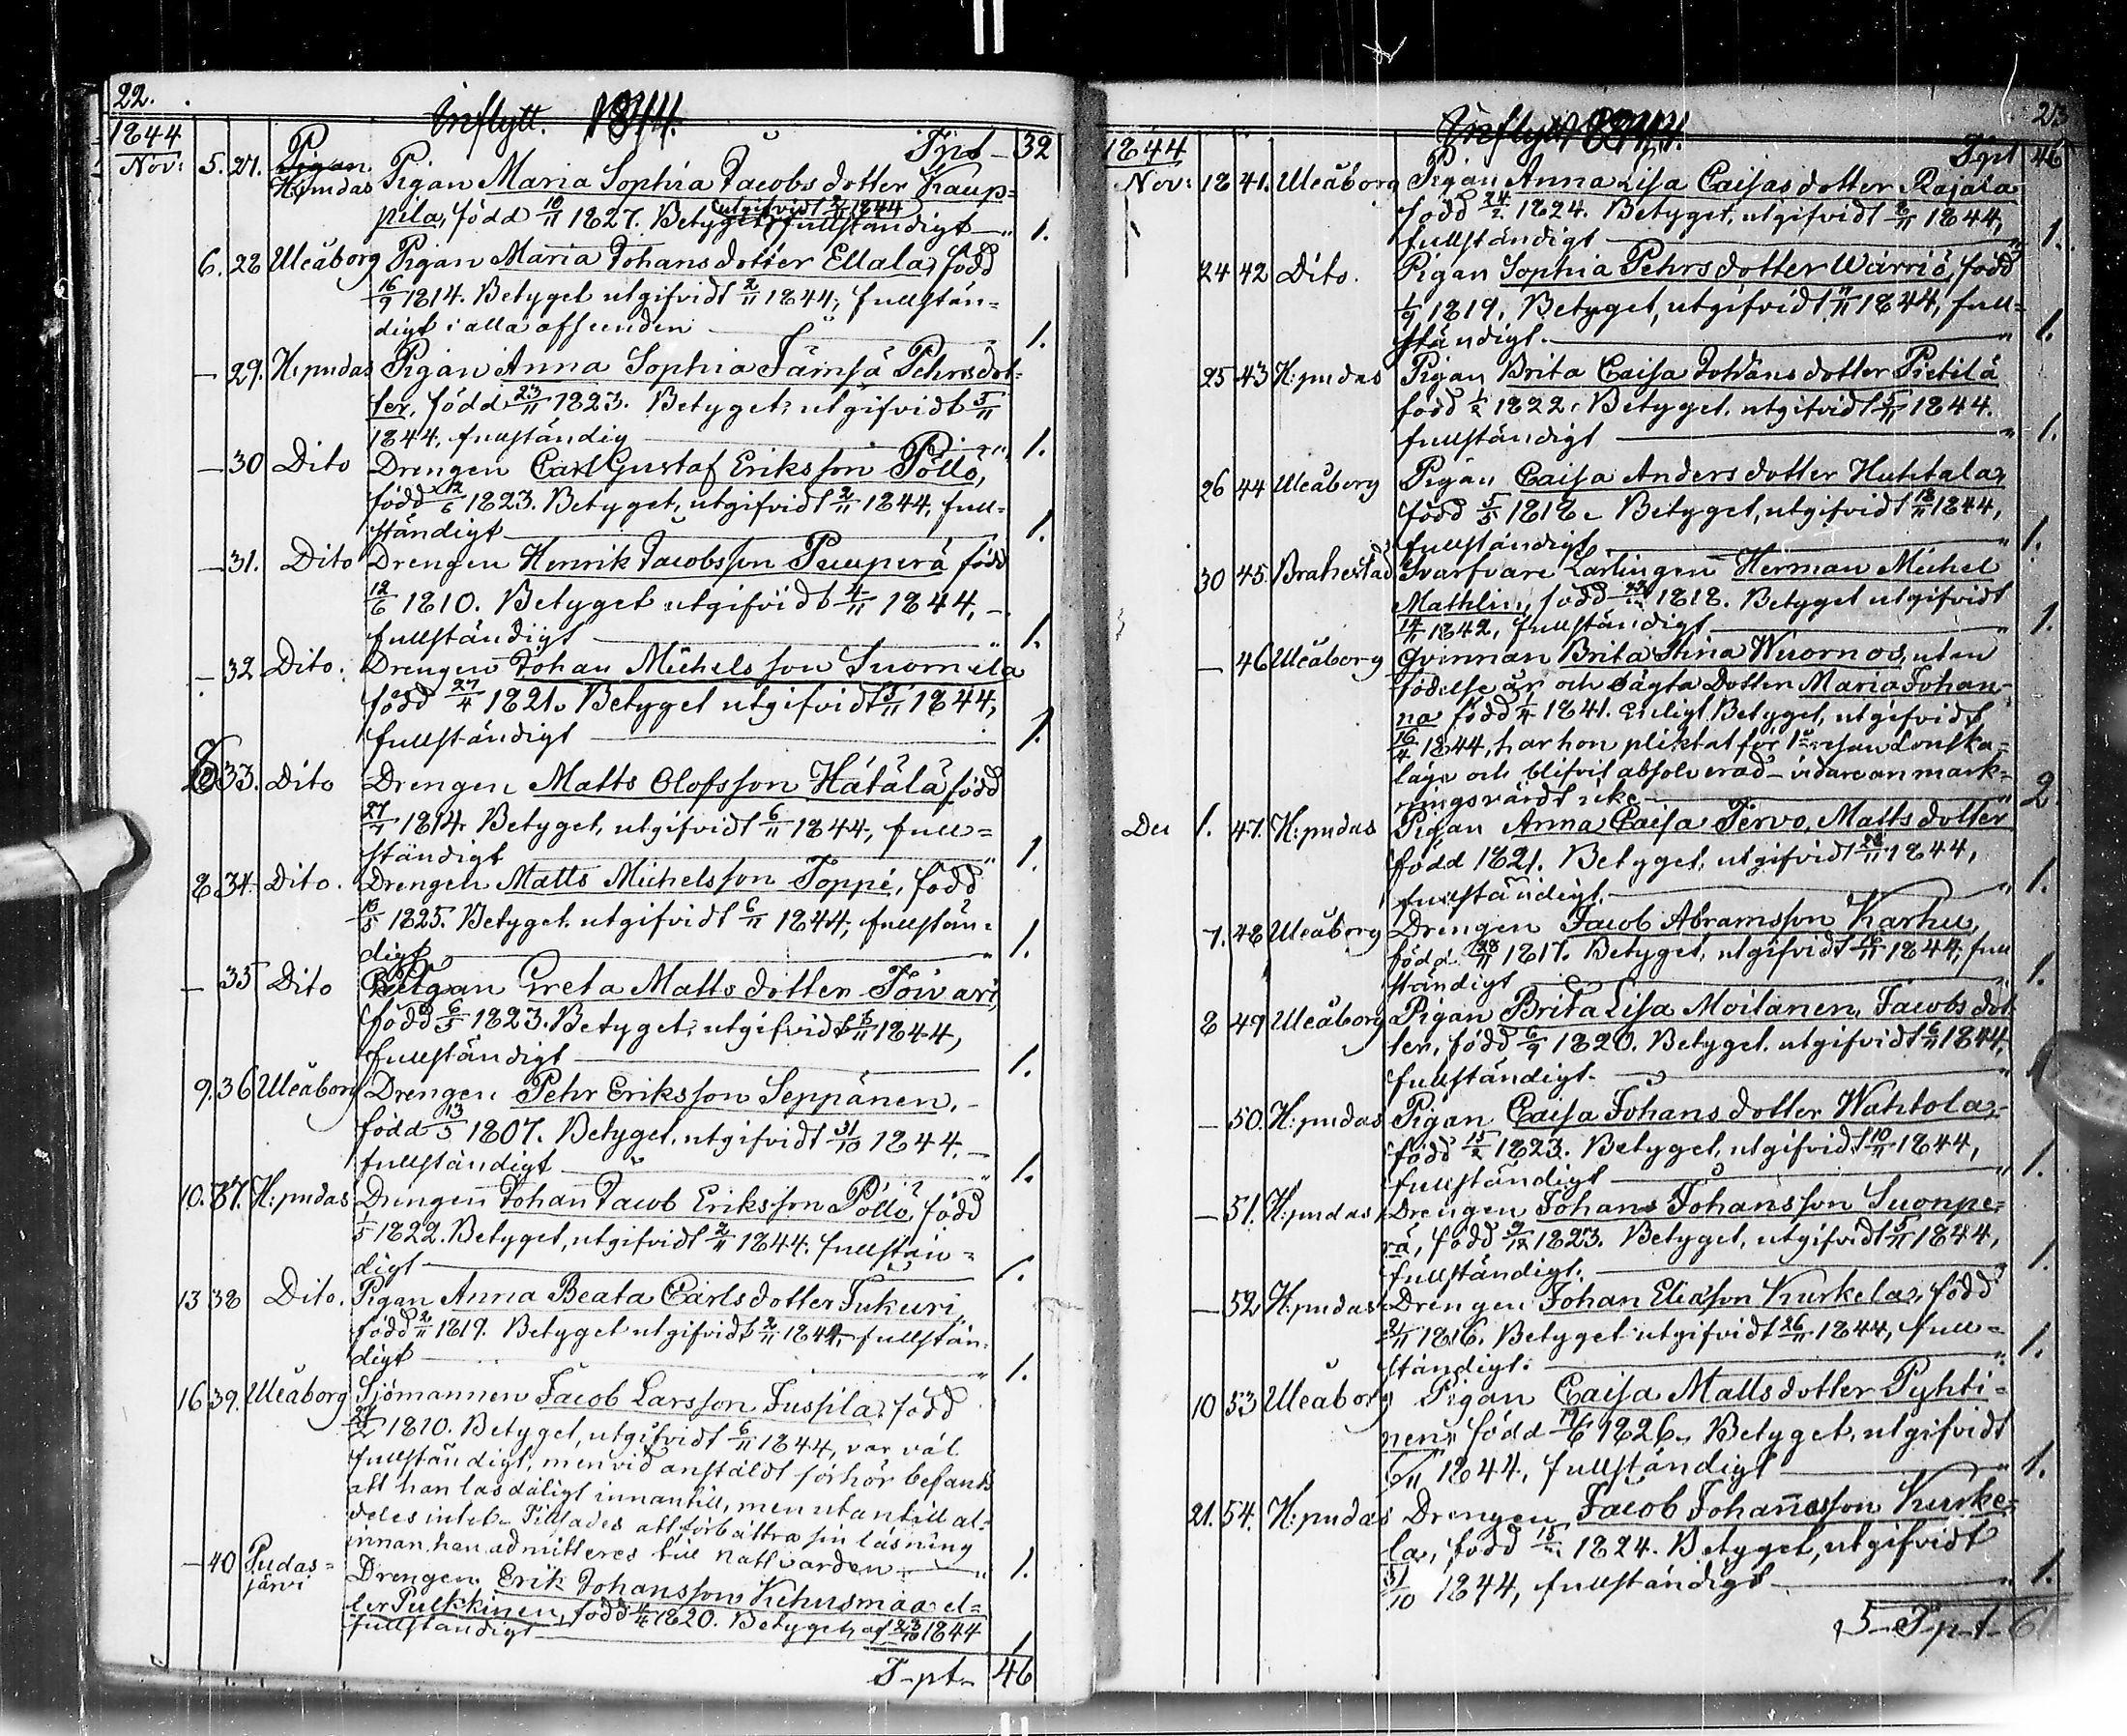 22.
Inflytt. 1844.
1844 Tpt - 32
Nov: 5. 27. H:pudas Pigan Maria Sophia Jacobs dotter Kaup=
pila, född 10/11 1827. Betyget, utgifvidt 2/11 1844 fullständigt — " 1.
6. 28 Uleåborg Pigan Maria Johans dotter Ellala, född
16/9 1814. Betyget utgifvidt 2/11 1844, fullstän=
digt i alla afseenden — 1.
— 29. H:pudas Pigan Anna Sophia Jämsä Pehrs dot=
ter, född 23/11 1823. Betyget, utgifvidt 5/11
1844, fullständig — " 1.
— 30 Dito Drengen Carl Gustaf Eriksson Pöllö,
född 12/6 1823. Betyget, utgifvidt 2/11 1844, full=
ständigt — 1.
— 31. Dito Drengen Henrik Jacobsson Puuperä född
12/6 1810. Betyget utgifvidt 4/11 1844, —
fullständigt — " 1.
— 32 Dito. Drengen Johan Michelsson Suomela
född 27/4 1821. Betyget utgifvidt 5/11 1844,
fullständigt — 1.
33. Dito Drengen Matts Olofsson Hätälä född
1814. Betyget, utgifvidt 6/11 1844, full=
ständigt — " 1.
8 34. Dito. Drengen Matts Michelsson Toppi, född
10/5 1825. Betyget utgifvidt 6/11 1844, fullstän=
digt — " 1.
— 35 Dito Pigan Greta Matts dotter Toivari,
född 6/5 1823. Betyget, utgifvidt 1844,
fullständigt — 1.
9. 36 Uleåborg Drengen Pehr Eriksson Seppänen, —
född 13/5 1807. Betyget, utgifvidt 31/10 1844. —
fullständigt — " 1.
10. 37. H:pudas Drengen Johan Jacob Eriksson Pöllö, född
1/5 1822. Betyget, utgifvidt 2/11 1844. fullstän=
digt — 1.
13 38 Dito. Pigan Anna Beata Carls dotter Tukuri,
född 2/11 1819. Betyget utgifvidt 2/11 1844, fullstän=
digt — " 1.
16 39. Uleåborg Sjömannen Jacob Larsson Jussila, född
1810. Betyget, utgifvidt 6/11 1844, var väl
fullständigt, men vid anstäldt förhör befants
att han las dåligt innantill, men utantill al=
deles intet. Tillsades att förbättra sin läsning
innan han admitteres till nattvarden — " 1.
— 40 Pudas=
järvi Drengen Erik Johansson Kehusmaa el=
ler Pulkkinen, född 1820. Betyget, af 23/10 1844
fullständigt — 1
T-pt- 46
23
Inflytt 1844.
1844 Tpt 46
Nov: 18 41. Uleåborg Pigan Anna Lisa Caisas dotter Rajala
född 24/2 1824. Betyget, utgifvidt 1844,
fullständigt — " 1.
24 42 Dito. Pigan Sophia Pehrs dotter Wärriö, född
1/9 1819. Betyget, utgifvidt 1844, full=
ständigt. — " 1.
25 43 H:pudas Pigan Brita Caisa Johans dotter Pietilä
född 1/2 1822. Betyget, utgifvidt 5/11 1844.
fullständigt — " 1.
26 44 Uleåborg Pigan Caisa Anders dotter Huhtala,
född 5/5 1818. Betyget, utgifvidt 18/11 1844,
fullständigt — " 1.
30 45. Brahestad Svarfvare Lärlingen Herman Michel
Mathlin, född 1818. Betyget utgifvidt
1842, fullständigt — " 1.
— 46 Uleåborg Qvinnan Brita Stina Wuornos, utan
födelse år och oägta Dotter Maria Johan=
na född 1/4 1841. Enligt Betyget, utgifvidt
16/4 1844, har hon pliktat för 1sta resan Lönska=
läge och blifvit absolverad — vidare anmärk=
ningsvärdt icke — " 2
Dec 1. 47. H:pudas Pigan Anna Caisa Tervo, Matts dotter
född 1821. Betyget, utgifvidt 28/11 1844,
fullständigt. — " 1.
7. 48 Uleåborg Drengen Jacob Abramsson Karhu,
född 1817. Betyget, utgifvidt 1844, full
ständigt — " 1.
8 49 Uleåborg Pigan Brita Lisa Moilanen, Jacobs dot
ter, född 6/9 1820. Betyget, utgifvidt 6/11 1844,
fullständigt. — "
— 50. H:pudas Pigan Caisa Johans dotter Wahtola,
född 15/2 1823. Betyget, utgifvidt 10/11 1844,
fullständigt — " 1.
— 51. H:pudas Drengen Johans Johansson Suonpe=
rä, född 9/12 1823. Betyget, utgifvidt 5/11 1844,
fullständigt. — 1.
— 52 H:pudas Drengen Johan Eliasson Kurkela, född
1816. Betyget utgifvidt 26/11 1844, full=
ständigt. — " 1.
10 53 Uleåborg Pigan Caisa Matts dotter Pyhti=
nen, född 19/6 1826. Betyget, utgifvidt
1844, fullständigt — " 1.
21. 54. H:pudas Drengen Jacob Johansson Kurke=
la, född 1824. Betyget, utgifvidt
31/10 1844, fullständigt — " 1.
T-p-t- 61